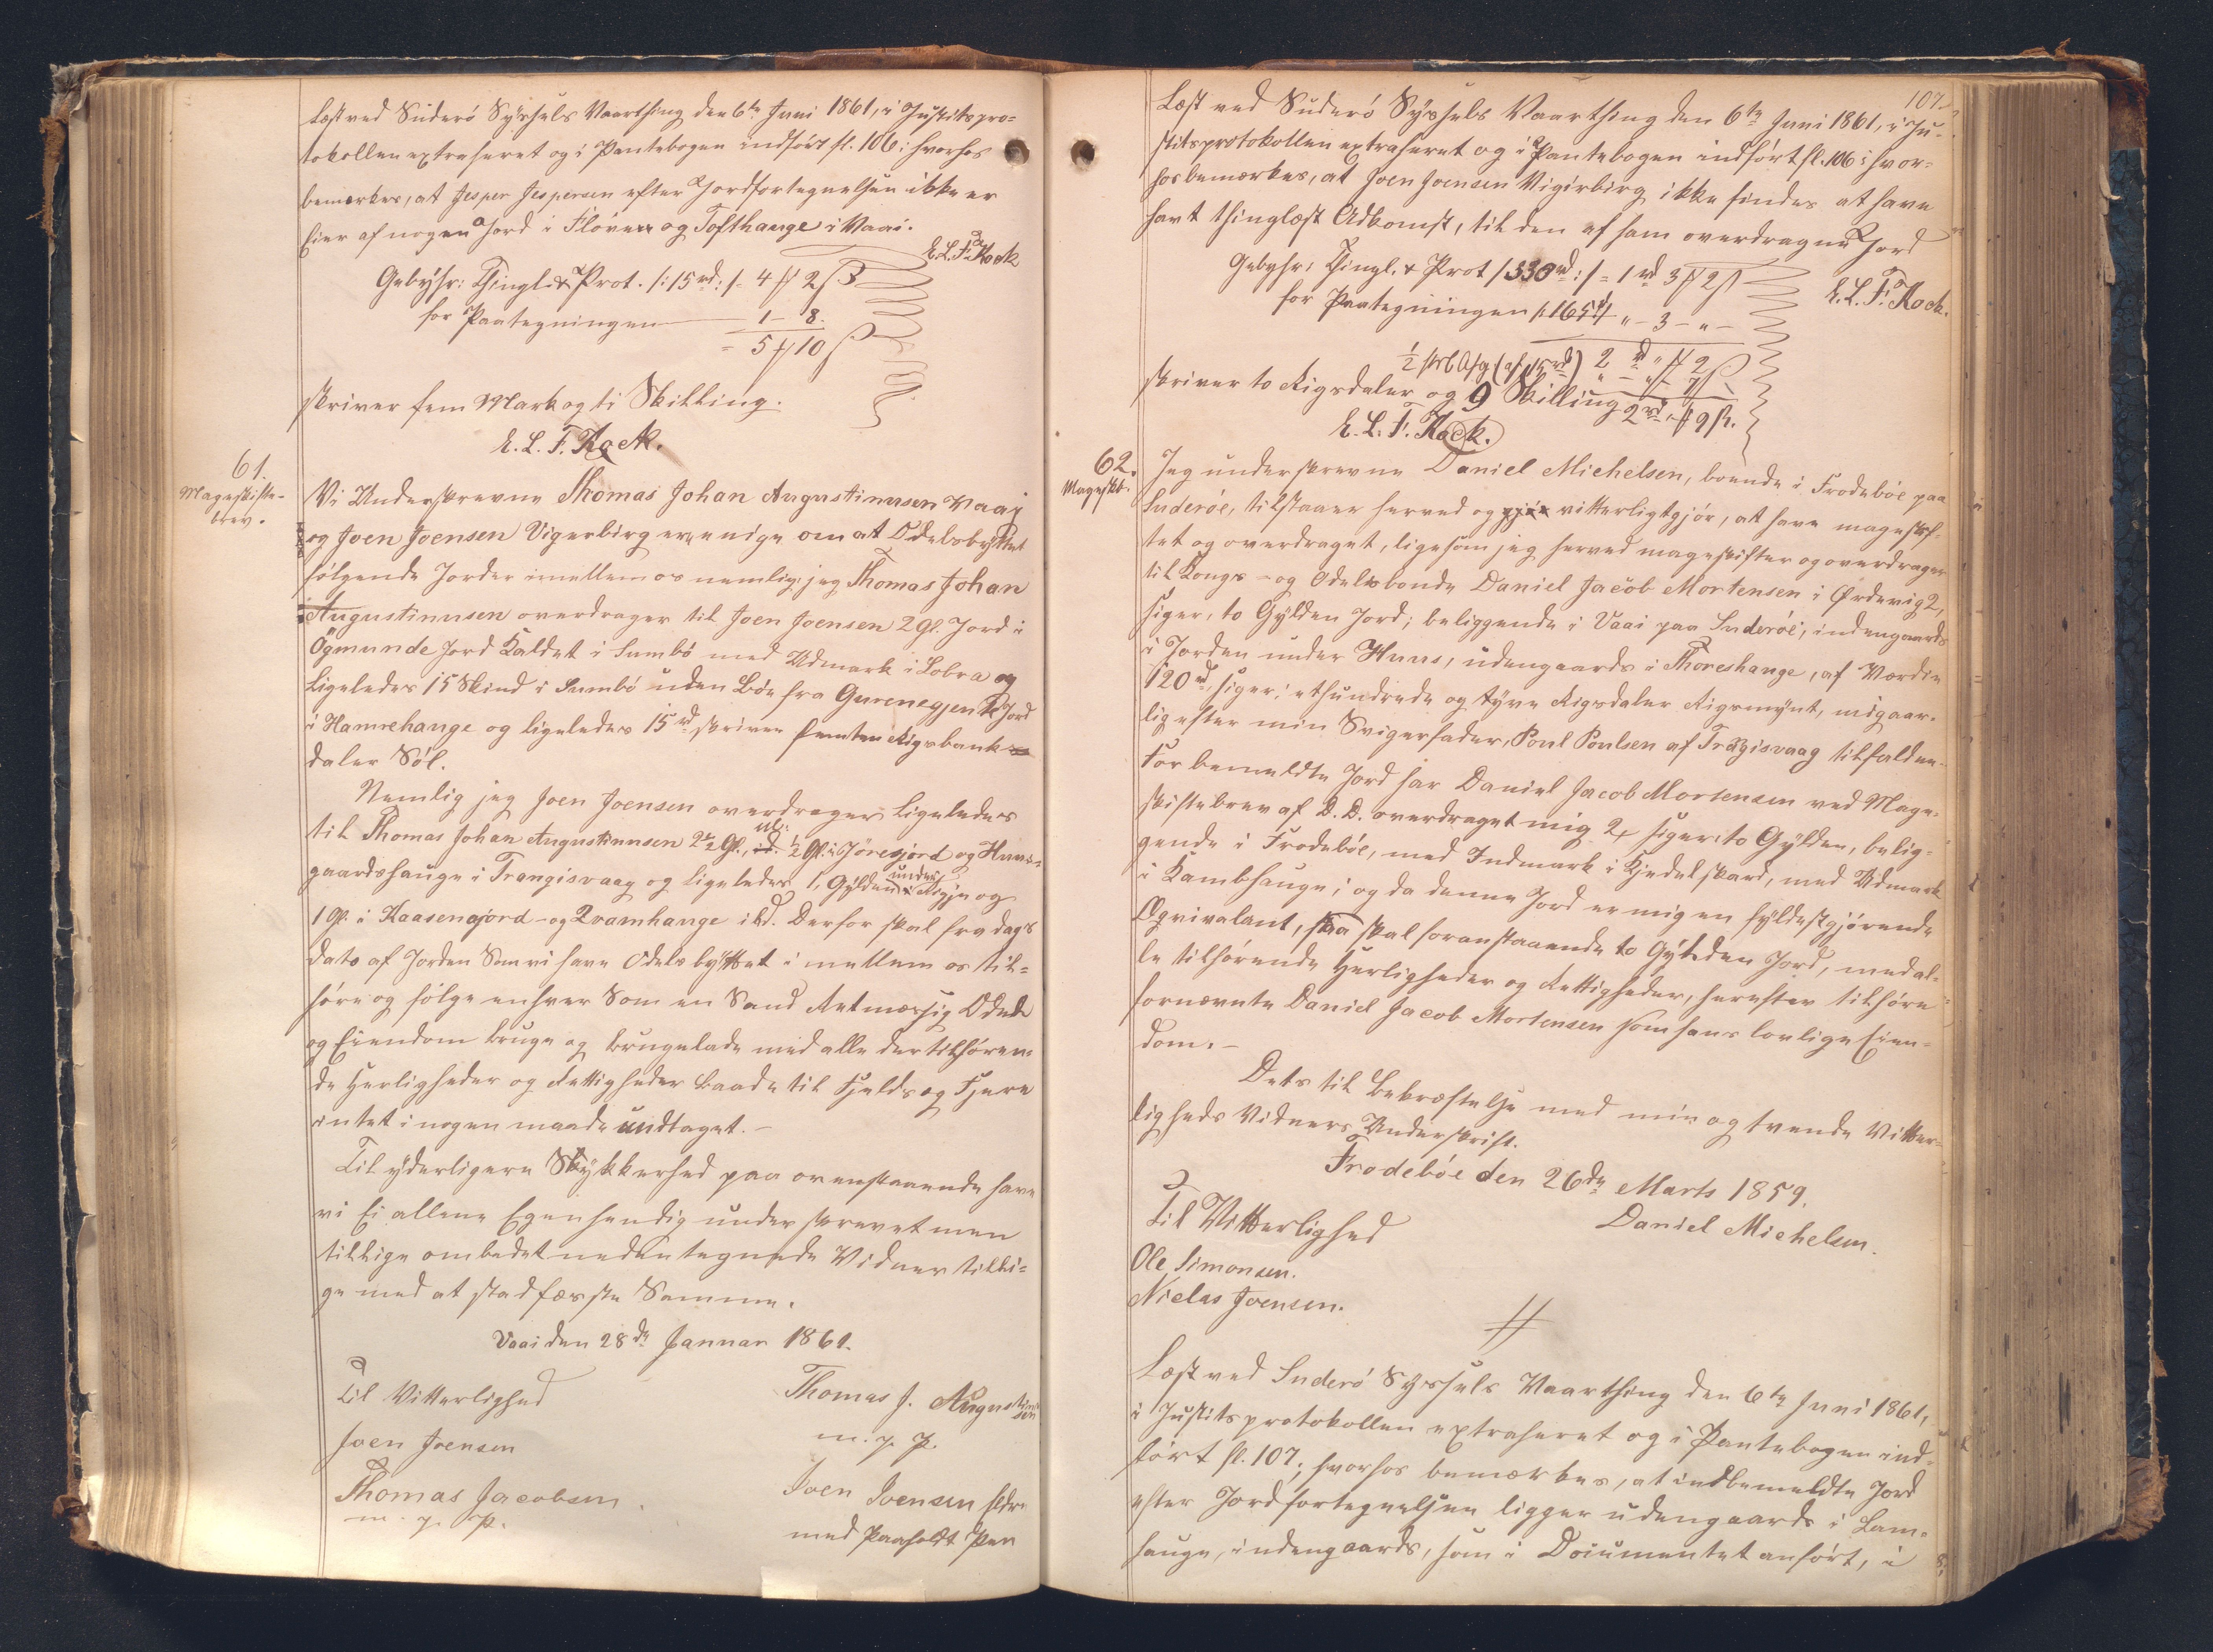 Læst ved Suderö Syssels Vaarthing den 6te Juni 1861, i Justitspro=
tokollen extraheret og i Pantebogen indført fl. 106: hvorhos
bemærkes, at Jesper Jespersen efter Jordfortegnelsen ikke er
Eier af nogen Jord i Flöven og Tofthauge i Vaai.
E. L. F. Kock
Gebyhr: Thingl. & Prot. /: 15 rd :/ = 4 # 2 ß
for Paategningen 1 - 8.
= 5 # 10 ß
skriver fem Mark og ti Skilling.
E. L. F. Kock.
61.
Mageskifte-
brev.
Vi Underskrevne Thomas Johan Augustinusen Vaaj
og Joen Joensen Vigerbirg ere enige om at Odelsbyttet
følgende Jorder imellem os nemlig: jeg Thomas Johan
Augustinusen overdrager til Joen Joensen 2 Gl. Jord i
Ögmunde Jord Kaldet i Sumbö med Udmark i Lobra og
Ligeledes 15 Skind i Sumbö uden Böe fra Gurenegjen Jord
i Hamrehauge og ligeledes 15 rd. skriver femten Rigsbank
daler Söl.
Nemlig jeg Joen Joensen overdrager Ligeledes
til Thomas Johan Augustinusen 2½ Gl., ½ Gl. i Jöresjord og Huus=
gaardshauge i Trangisvaag og ligeledes 1, Gylden under Rigje og
1 Gl. i Kaasengjord - og Qvamhauge ibd. Derfor skal fra dags
dato af Jorden Som vi have Odels byttet i mellem os til=
høre og følge enhver Som en Sand Retmæssig Odels
og Eiendom bruge og brugelade med alle dertilhøren=
de Herligheder og Rettigheder baade til Fjelds og Fjere
intet i nogen maade undtaget. -
Til yderligere Stykkerhed paa ovenstaaende have
vi Ei allene Egenhendig underskrevet men
tillige ombedet nedentegnede Vidner tilli=
ge med at stadfæsste Samme.
Vaai den 28de Januar 1861.
Til Vitterlighed
Thomas J. Augustinusen
m. p. p.
Joen Joensen
Thomas Jacobsen.
m. p. p.
Joen Joensen
med Paaholdt Pen
107.
Læst ved Suderö Syssels Vaarthing den 6te Juni 1861, i Ju-
stitsprotokollen extraheret og i Pantebogen indført fl. 106: hvor=
hos bemærkes, at Joen Joensen Vigirbirg ikke findes at have
havt thinglæst Adkomst, til den af ham overdragne Jord
Gebyhr: Thingl. & Prot /: 330 rd :/ = 1 rd 3 # 2 ß
E. L. F. Kock.
for Paategningen /: 165 :/ " - 3 - " -
2 rd " # 2 ß
½ pct Afg (af 15 rd) " - " - 7
skriver to Rigsdaler og 9 Skilling 2 rd " # 9 ß.
E. L. F. Kock.
62.
Mageskb.
Jeg underskrevne Daniel Michelsen, boende i Frodeböe paa
Suderöe, tilstaaer herved og vitterligtgjör, at have mageskif=
tet og overdraget, ligesom jeg herved mageskifter og overdrager
til Kongs- og Odelsbonde Daniel Jacob Mortensen i Ørdevig 2,
siger, to Gylden Jord; beliggende i Vaai paa Suderöe, indengaards
i Jorden under Huus, udengaards i Thoreshauge, af Værdie
120 rd, siger: ethundrede og tyve Rigsdaler Rigsmynt, mig aar=
lig efter min Svigerfader, Poul Poulsen af Trangisvaag tilfalden.
For bemeldte Jord har Daniel Jacob Mortensen ved Mage=
skiftebrev af D. D. overdraget mig 2, siger: to Gylden, belig=
gende i Frodeböe, med Indmark i Kjedelskard, med Udmark
i Kambhauge; og da denne Jord er mig en fyldestgjørende
Eqvivalent, saa skal foranstaaende to Gylden Jord, med al=
le tilhørende Herligheder og Rettigheder, herefter tilhøre
fornævnte Daniel Jacob Mortensen som hans lovlige Eien=
dom. -
Dets til Bekræftelse med min og tvende Vitter=
ligheds Vidners Underskrift.
Frodeböe den 26de Marts 1859.
Til Vitterlighed
Daniel Michelsen.
Ole Simonsen.
Niclas Joensen.
Læst ved Suderö Syssels Vaarthing den 6te Juni 1861,
i Justitsprotokollen extraheret og i Pantebogen ind=
ført fl. 107; hvorhos bemærkes, at indbemeldte Jord
efter Jordfortegnelsen ligger udengaards i Lam=
hauge, indengaards, som i Documentet anført, i